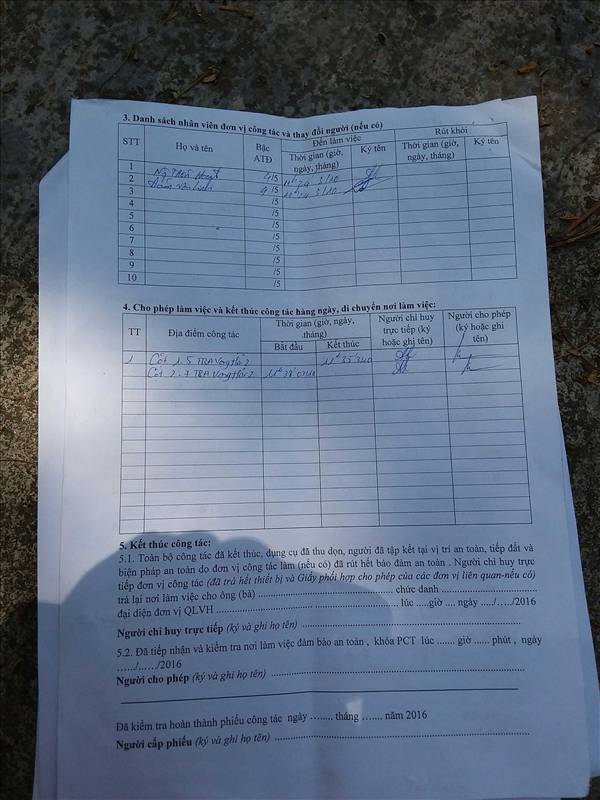 3. Danh sách nhân viên đơn vị công tác và thay đổi người (nếu có)
STT Họ và tên Bậc ATĐ Đến làm việc Rút khỏi
Thời gian (giờ, ngày, tháng) Ký tên Thời gian (giờ, ngày, tháng) Ký tên
1
2 4/5
3 4/5
4 /5
5 /5
6 /5
7 /5
8 /5
9 /5
10 /5
4. Cho phép làm việc và kết thúc công tác hàng ngày, di chuyển nơi làm việc:
TT Địa điểm công tác Thời gian (giờ, ngày, tháng) Người chỉ huy trực tiếp (ký hoặc ghi tên) Người cho phép (ký hoặc ghi tên)
Bắt đầu Kết thúc
1 Cột 1.5 TBA
Cột 2.7 TBA
5. Kết thúc công tác:
5.1. Toàn bộ công tác đã kết thúc, dụng cụ đã thu dọn, người đã tập kết tại vị trí an toàn, tiếp đất và
biện pháp an toàn do đơn vị công tác làm (nếu có) đã rút hết bảo đảm an toàn . Người chỉ huy trực
tiếp đơn vị công tác (đã trả hết thiết bị và Giấy phối hợp cho phép của các đơn vị liên quan-nếu có)
trả lại nơi làm việc cho ông (bà) ........ chức danh ........
đại diện đơn vị QLVH ........ lúc ....giờ .... ngày ...../...../2016
Người chỉ huy trực tiếp (ký và ghi họ tên) ........
5.2. Đã tiếp nhận và kiểm tra nơi làm việc đảm bảo an toàn , khóa PCT lúc ....... giờ ...... phút , ngày
...../...../2016
Người cho phép (ký và ghi họ tên) ........
Đã kiểm tra hoàn thành phiếu công tác ngày ........ tháng ....... năm 2016
Người cấp phiếu (ký và ghi họ tên) ........